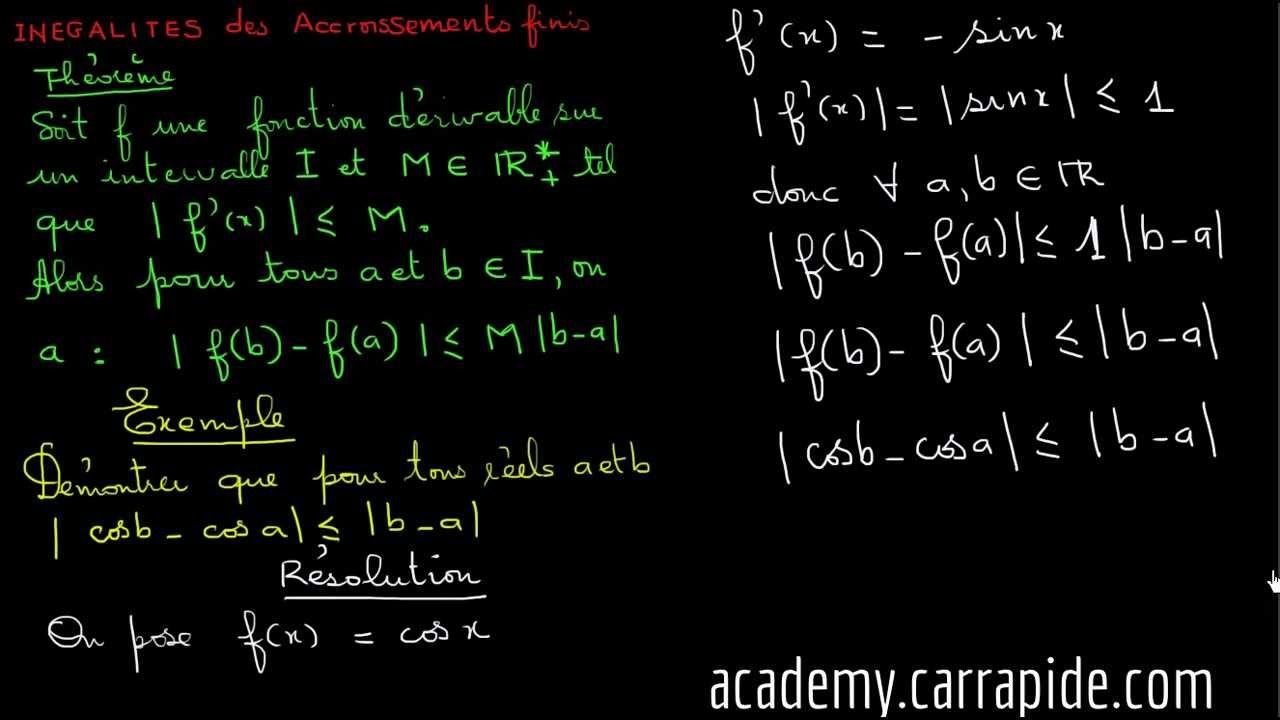 INEGALITES des Accroissements finis
Théorème
Soit f une fonction dérivable sur
un intervalle I et M ∈ ℝ*₊ tel
que | f'(x) | ≤ M.
Alors pour tous a et b ∈ I, on
a : | f(b) - f(a) | ≤ M |b-a|
Exemple
Démontrer que pour tous réels a et b
| cosb - cos a | ≤ |b-a|
Résolution
On pose f(x) = cos x
f'(x) = - sin x
| f'(x) | = | sin x | ≤ 1
donc ∀ a, b ∈ ℝ
| f(b) - f(a) | ≤ 1 |b-a|
| f(b) - f(a) | ≤ |b-a|
| cosb - cosa | ≤ |b-a|
academy.carrapide.com